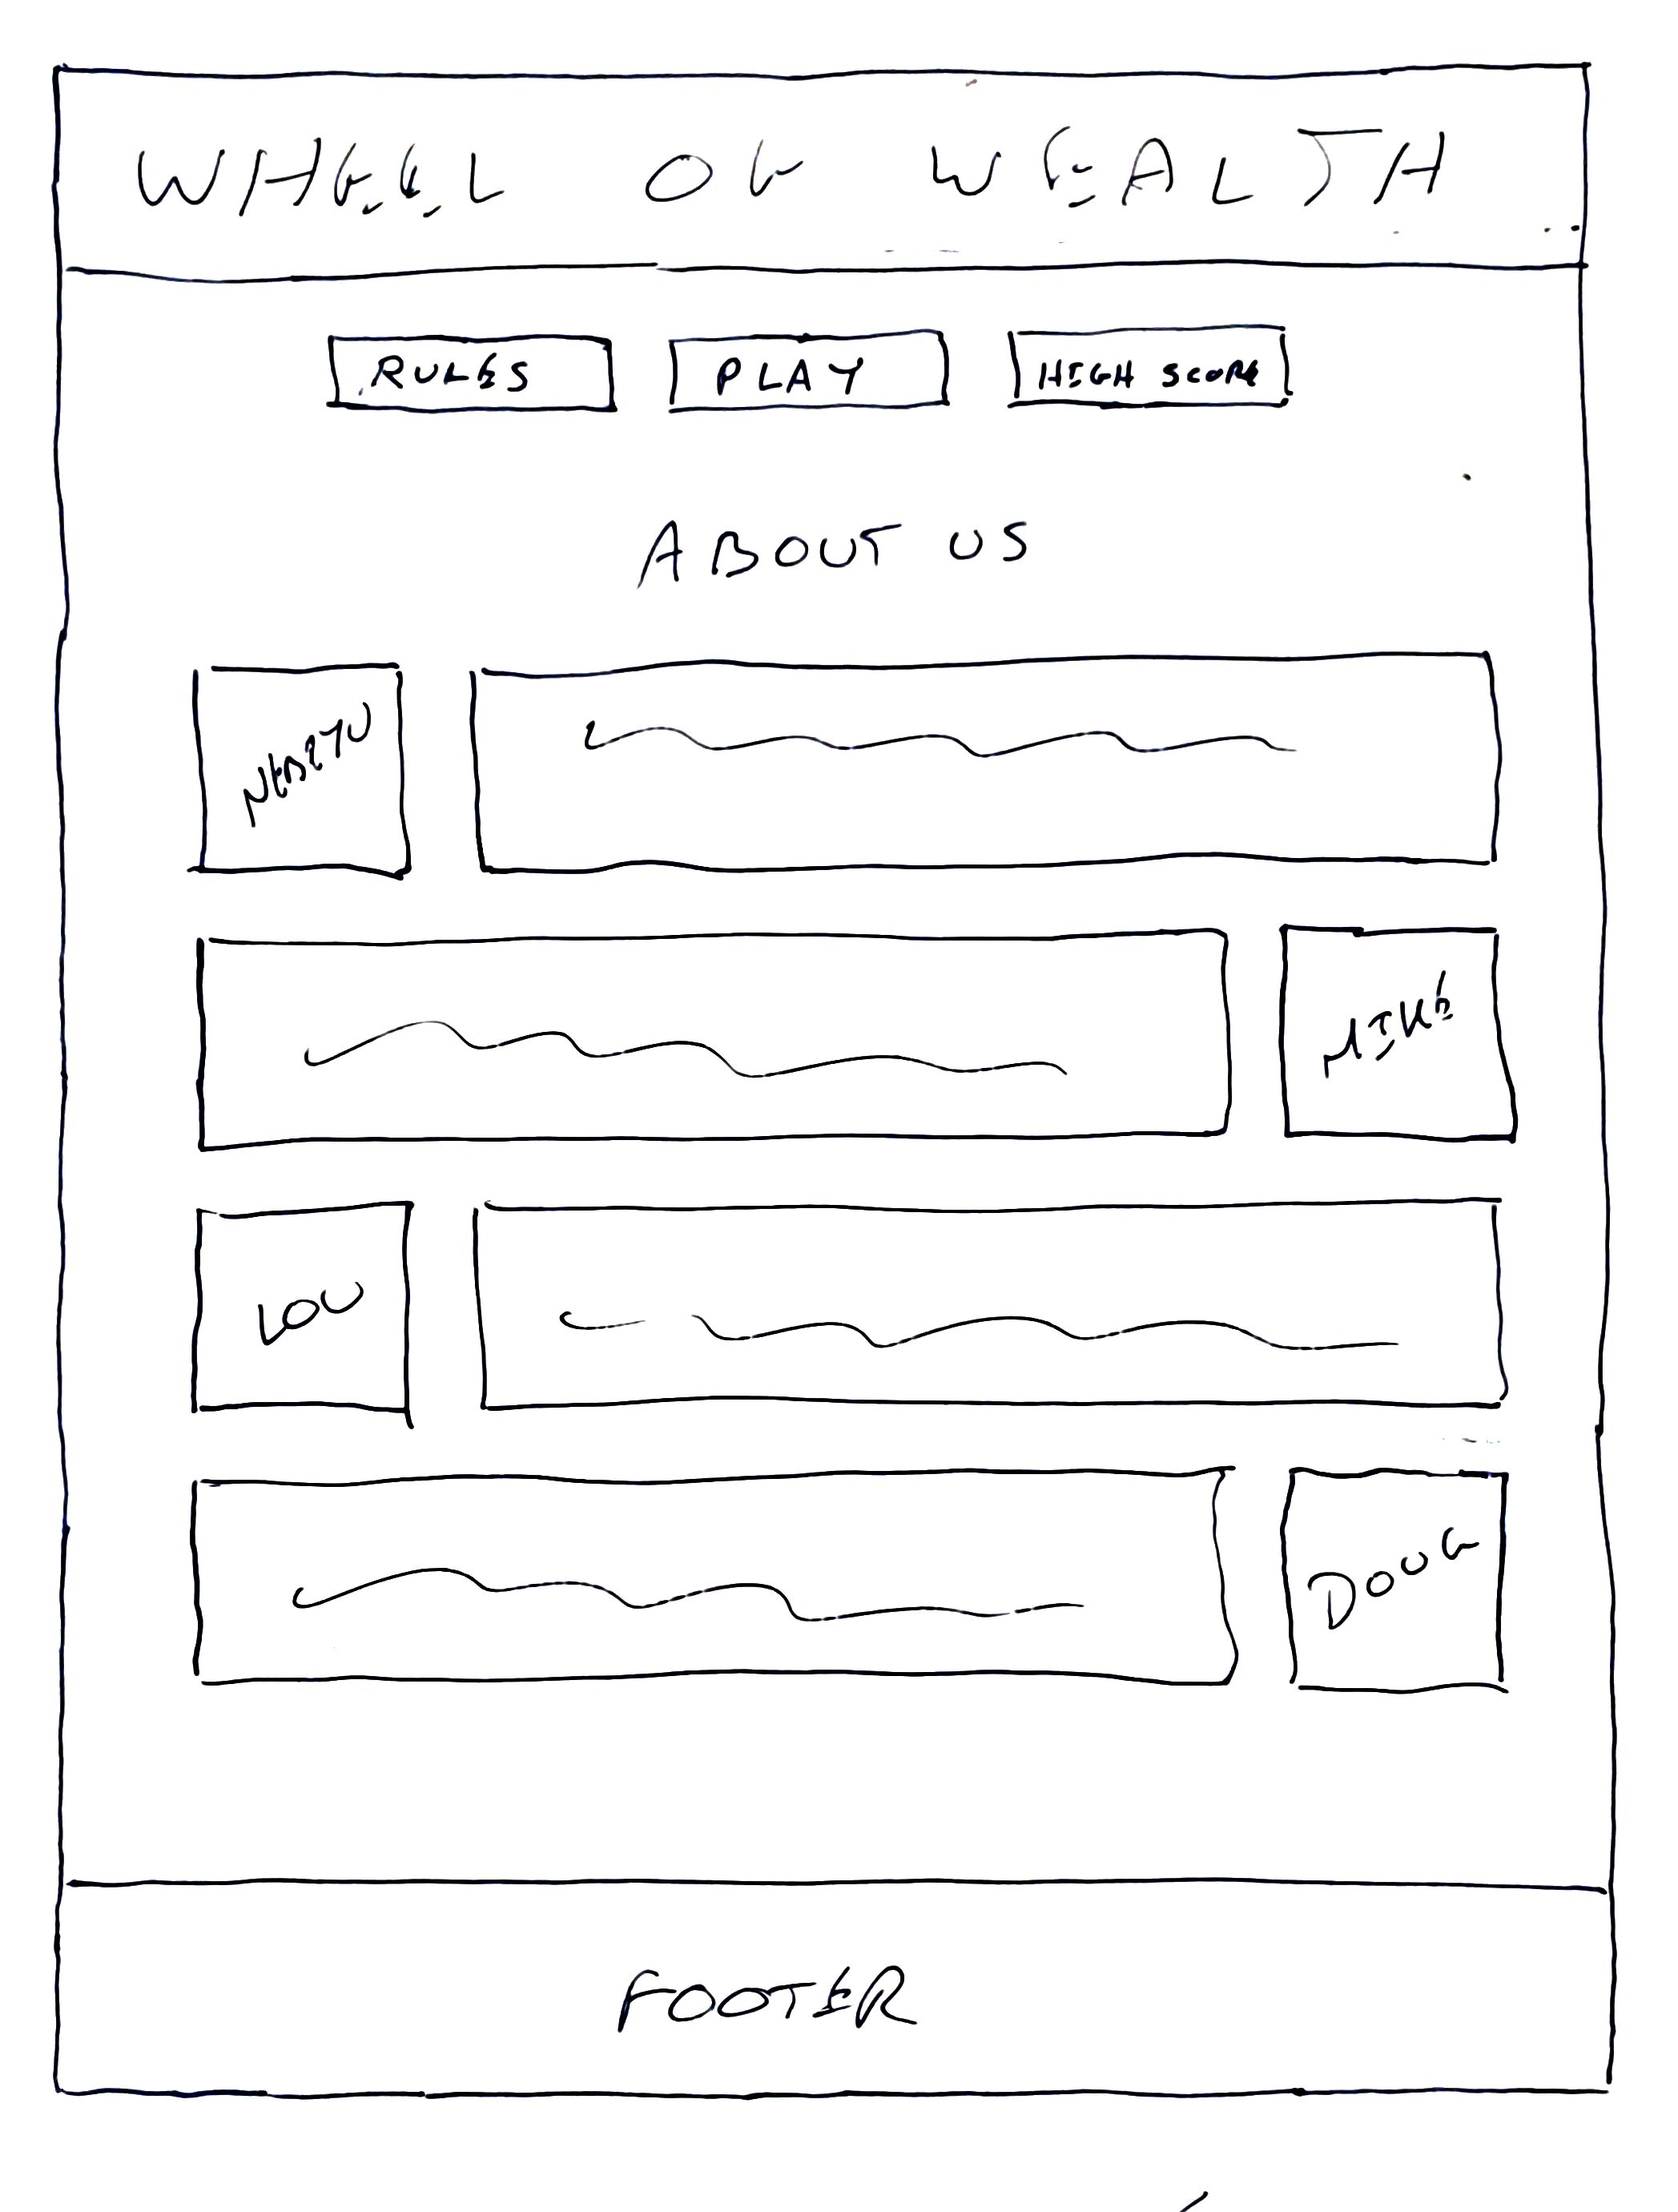 WHEEL OF WEALTH
RULES PLAY HIGH SCORE
ABOUT US
MIKE
LOU
DOUG
FOOTER